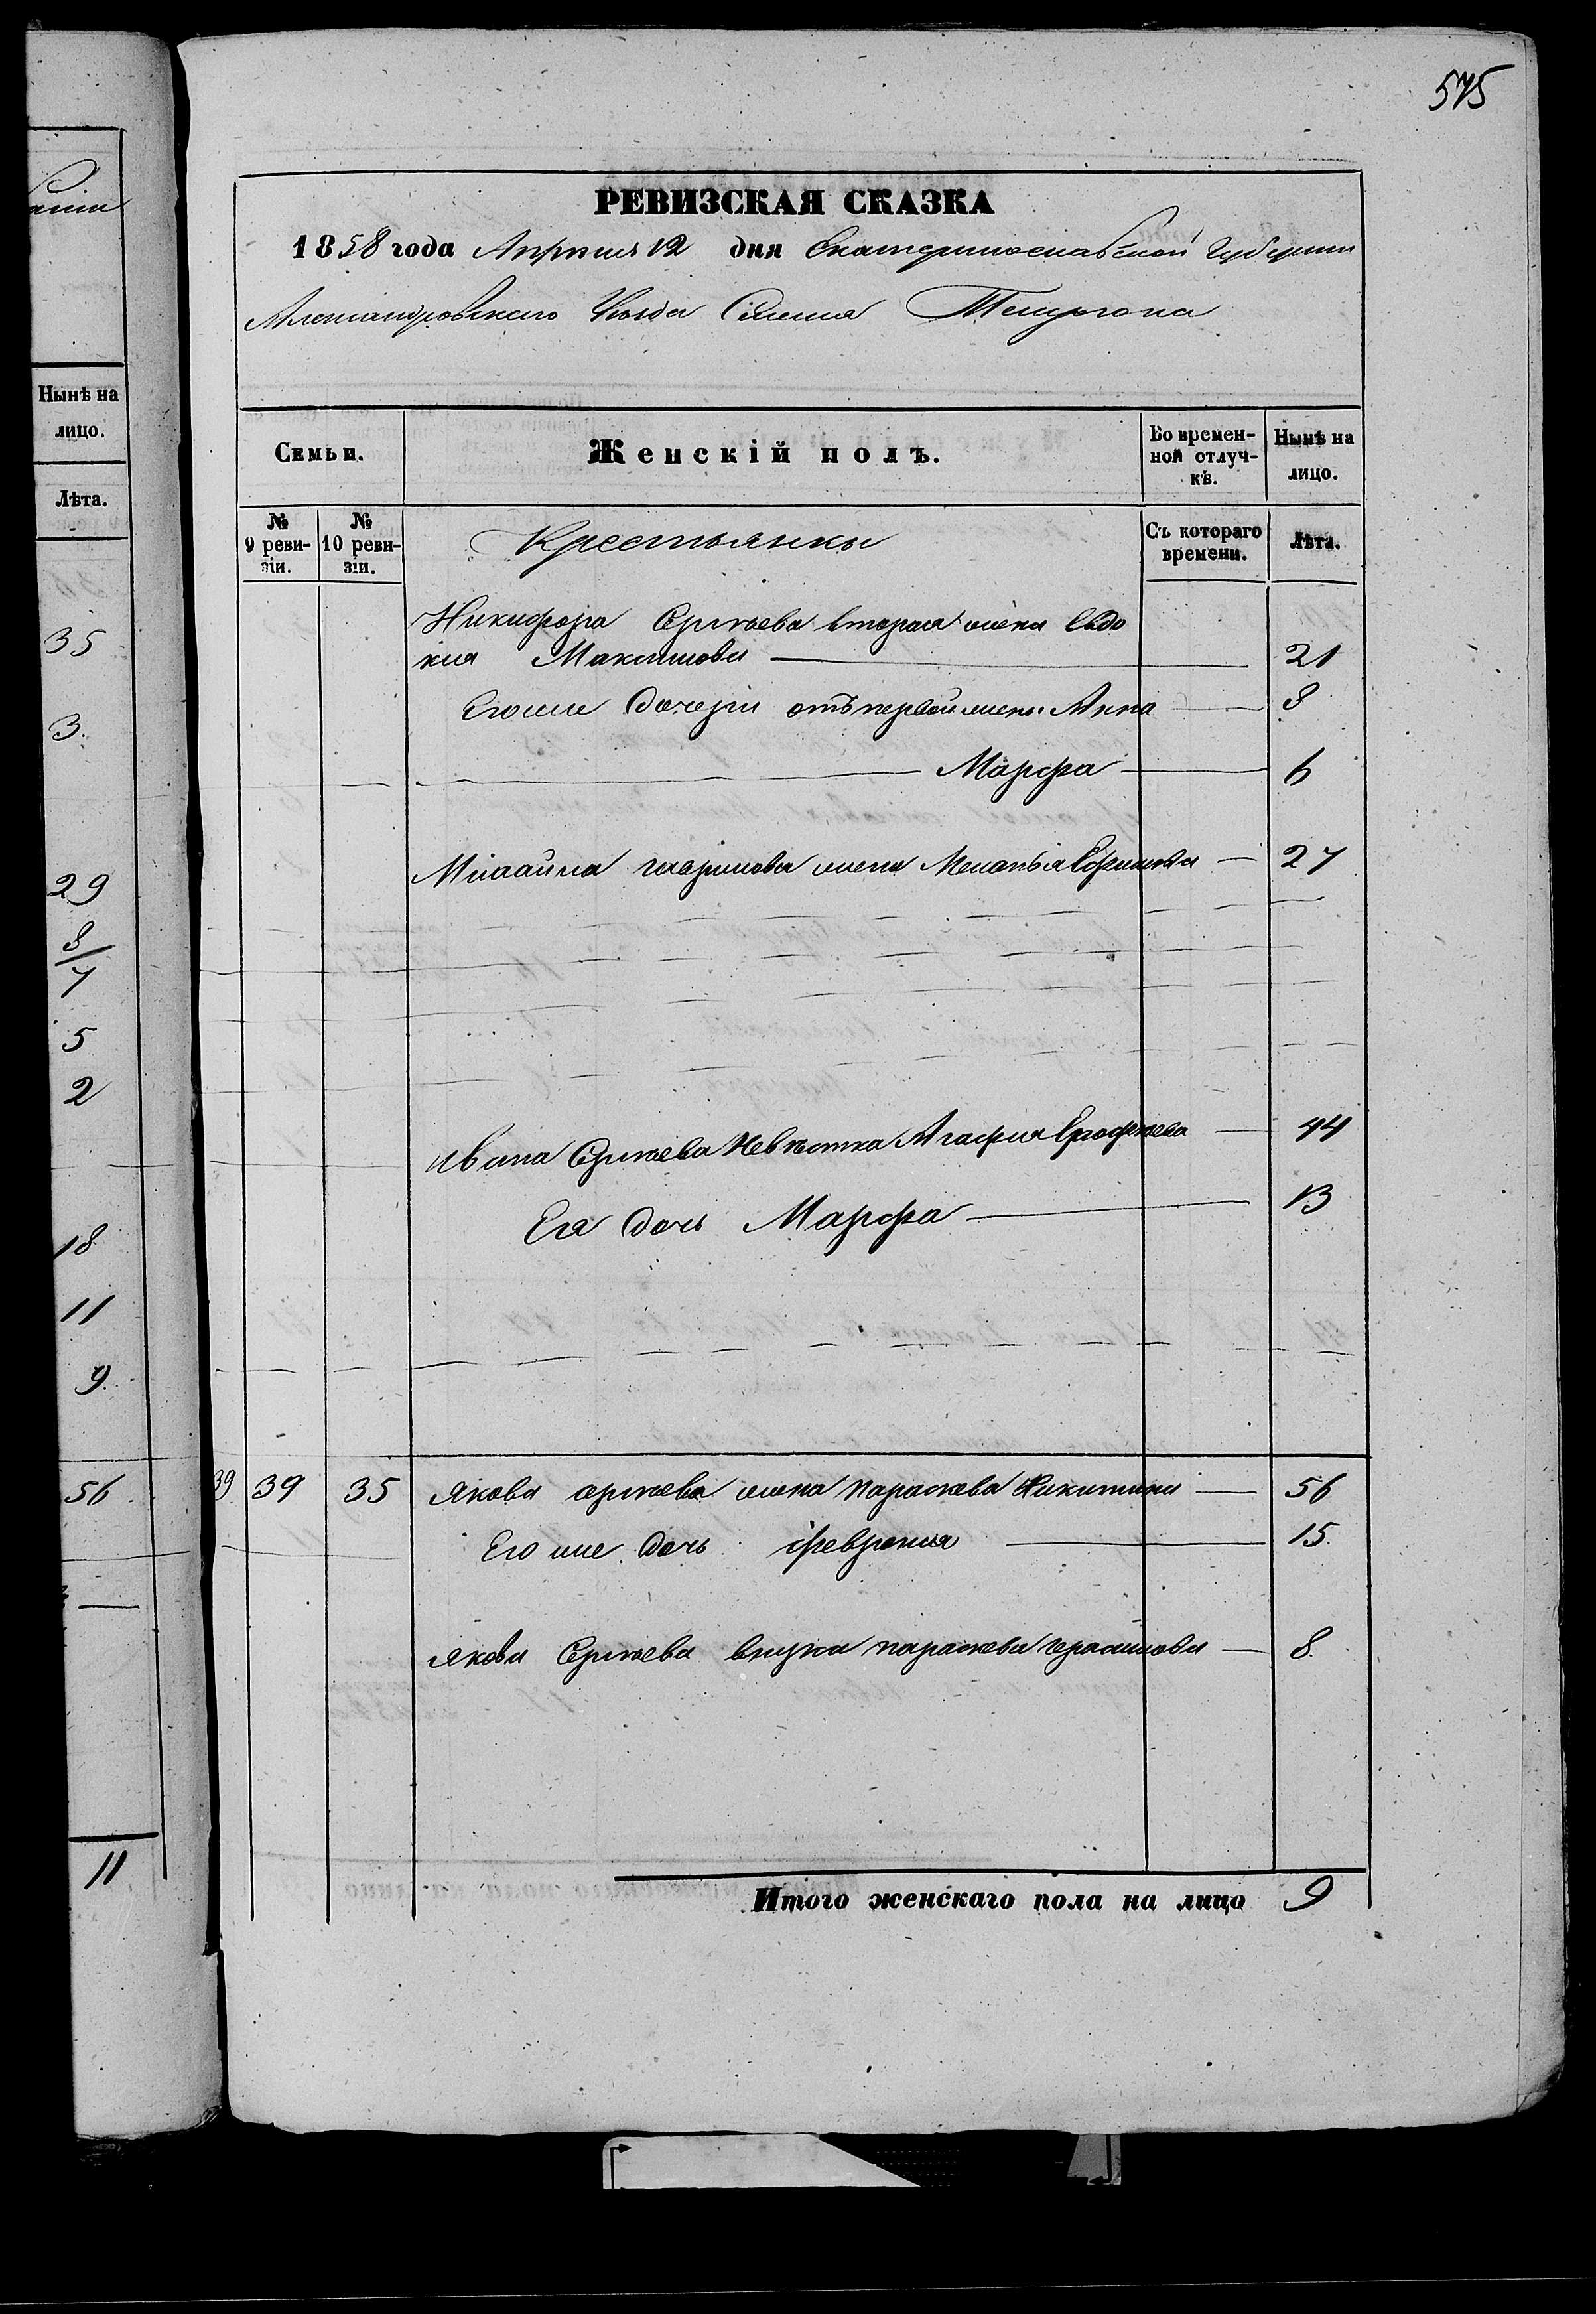 575
РЕВИЗСКАЯ СКАЗКА
1858 года Апреля 12 дня Екатеринославской Губернии
Александровского Уезда Селения
Семьи.
Женскій полъ.
Во времен-
ной отлуч-
кѣ.
Нынѣ на
лицо.
№
9 реви-
зіи.
№
10 реви-
зіи.
Крестьянки
Съ котораго
времени.
Лѣта.
Никифора Сергѣева вторая жена Евдо
кия Максимова 21
Его же дочери отъ первой жены Анна 8
Марфа 6
Михайла Гаврилова жена Меланья 27
Ивана Сергѣева Невѣстка Агафия Ерофѣева 44
Ея дочь Марфа 13
39 39 35 Якова Сергѣева жена Параскева Никитина 56
Его же дочь Феврония 15
Якова Сергѣева внука Параскева Герасимова 8
Итого женскаго пола на лицо 9
Нынѣ на
лицо.
Лѣта.
35
3
29
8/7
5
2
18
11
9
56
11